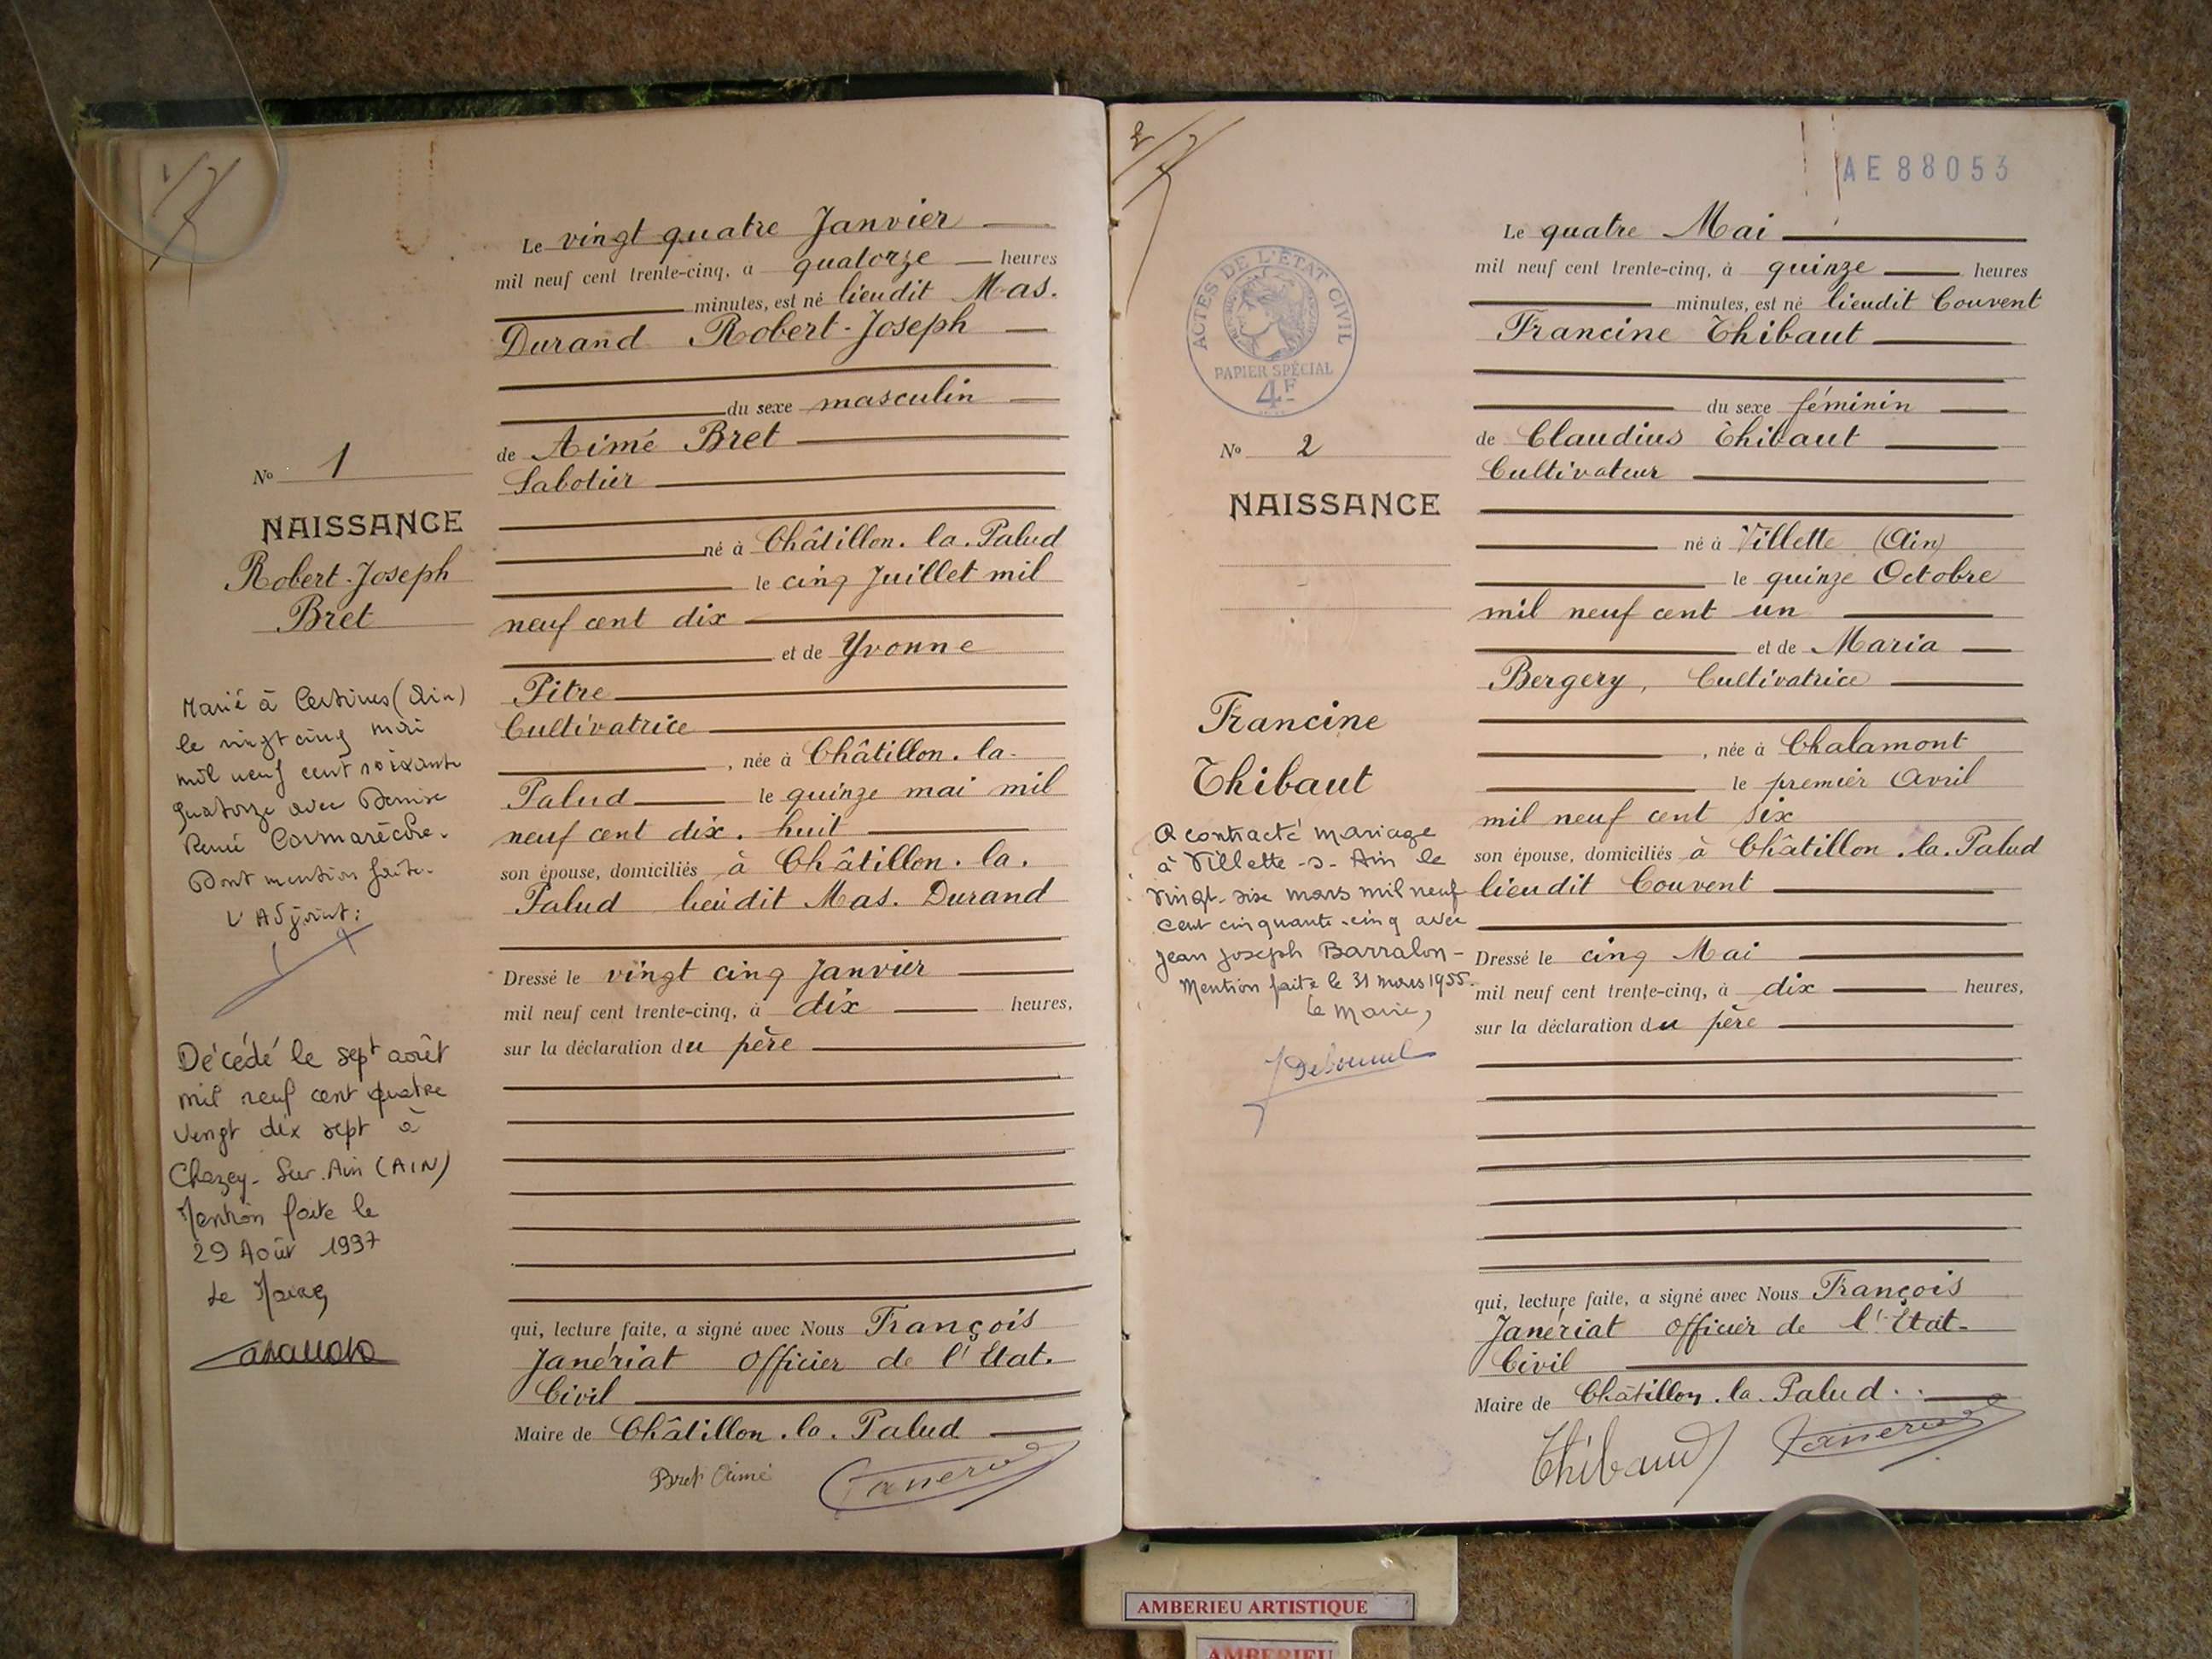 1
Le vingt quatre Janvier
mil neuf cent trente-cinq, à quatorze heures
minutes, est né lieudit Mas.
Durand Robert-Joseph
du sexe masculin
de Aimé Bret
Sabotier
né à Châtillon. la. Palud
le cinq Juillet mil
neuf cent dix
et de Yvonne
Pitre
Cultivatrice
, née à Châtillon. la-
Palud le quinze mai mil
neuf cent dix. huit
son épouse, domiciliés à Châtillon. la.
Palud lieudit Mas. Durand
Dressé le vingt cinq Janvier
mil neuf cent trente-cinq, à dix heures,
sur la déclaration du père
qui, lecture faite, a signé avec Nous François
Janériat Officier de l'Etat.
Civil
Maire de Châtillon. la. Palud
Bret Aimé
Janeriat
No 1
NAISSANCE
Robert-Joseph
Bret
Marié à Certines (Ain)
le vingt cinq mai
mil neuf cent soixante
quatorze avec Denise
Renée Cormarèche.
Dont mention faite.
L'Adjoint:
Décédé le sept août
mil neuf cent quatre
vingt dix sept à
Chazey-Sur-Ain (AIN)
Mention faite le
29 Août 1997
Le Maire,
2
AE88053
Le quatre Mai
mil neuf cent trente-cinq, à quinze heures
minutes, est né lieudit Couvent
Francine Thibaut
du sexe féminin
de Claudius Thibaut
Cultivateur
né à Villette (Ain)
le quinze Octobre
mil neuf cent un
et de Maria
Bergery, Cultivatrice
, née à Chalamont
le premier Avril
mil neuf cent six
son épouse, domiciliés à Châtillon. la. Palud
lieudit Couvent
Dressé le cinq Mai
mil neuf cent trente-cinq, à dix heures,
sur la déclaration du père
qui, lecture faite, a signé avec Nous François
Janériat Officier de l'Etat-
Civil
Maire de Châtillon. la. Palud..
Thibaud
Janeriat
ACTES DE L'ÉTAT CIVIL
PAPIER SPÉCIAL
4F
No 2
NAISSANCE
Francine
Thibaut
A contracté mariage
à Villette-s-Ain le
vingt-six mars mil neuf
cent cinquante-cinq avec
Jean Joseph Barralon-
Mention faite le 31 mars 1955.
Le Maire,
AMBERIEU ARTISTIQUE
AMBERIEU